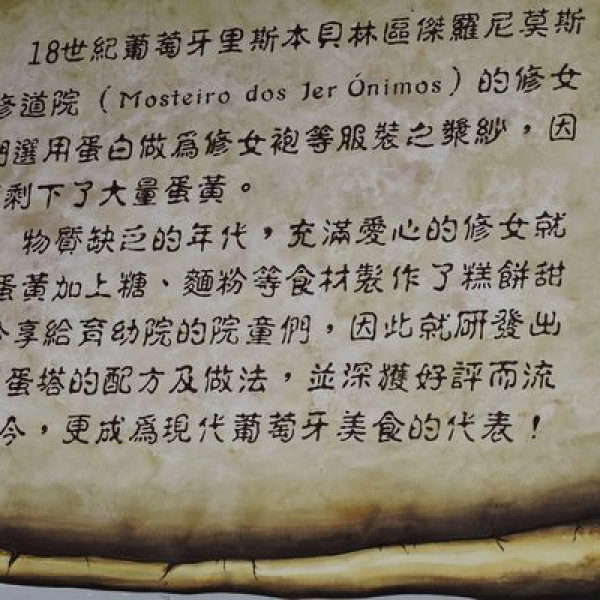 18世紀葡萄牙里斯本貝林區傑羅尼莫斯
修道院（Mosteiro dos Jer Ónimos）的修女
們選用蛋白做爲修女袍等服裝之漿紗，因
剩下了大量蛋黃。
物質缺乏的年代，充滿愛心的修女就
蛋黃加上糖、麵粉等食材製作了糕餅甜
享給育幼院的院童們，因此就研發出
蛋塔的配方及做法，並深獲好評而流
今，更成爲現代葡萄牙美食的代表！